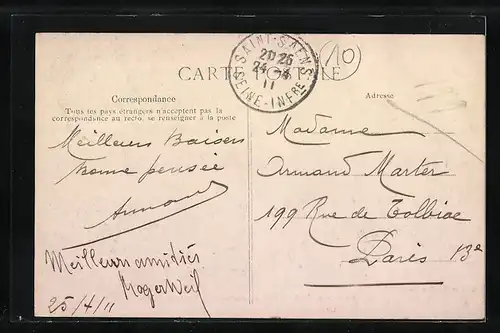 SAINT-SAENS
20 25
24-4
11
SEINE-INFRE
10
CARTE POSTALE
Correspondance
Tous les pays étrangers n'acceptent pas la
correspondance au recto, se renseigner à la poste
Adresse
Meilleurs Baisers
Bonne pensée
Armand
Meilleures amitiés
Roger Weil
25/4/11
Madame
Armand Marter
199 Rue de Tolbiac
Paris 13e